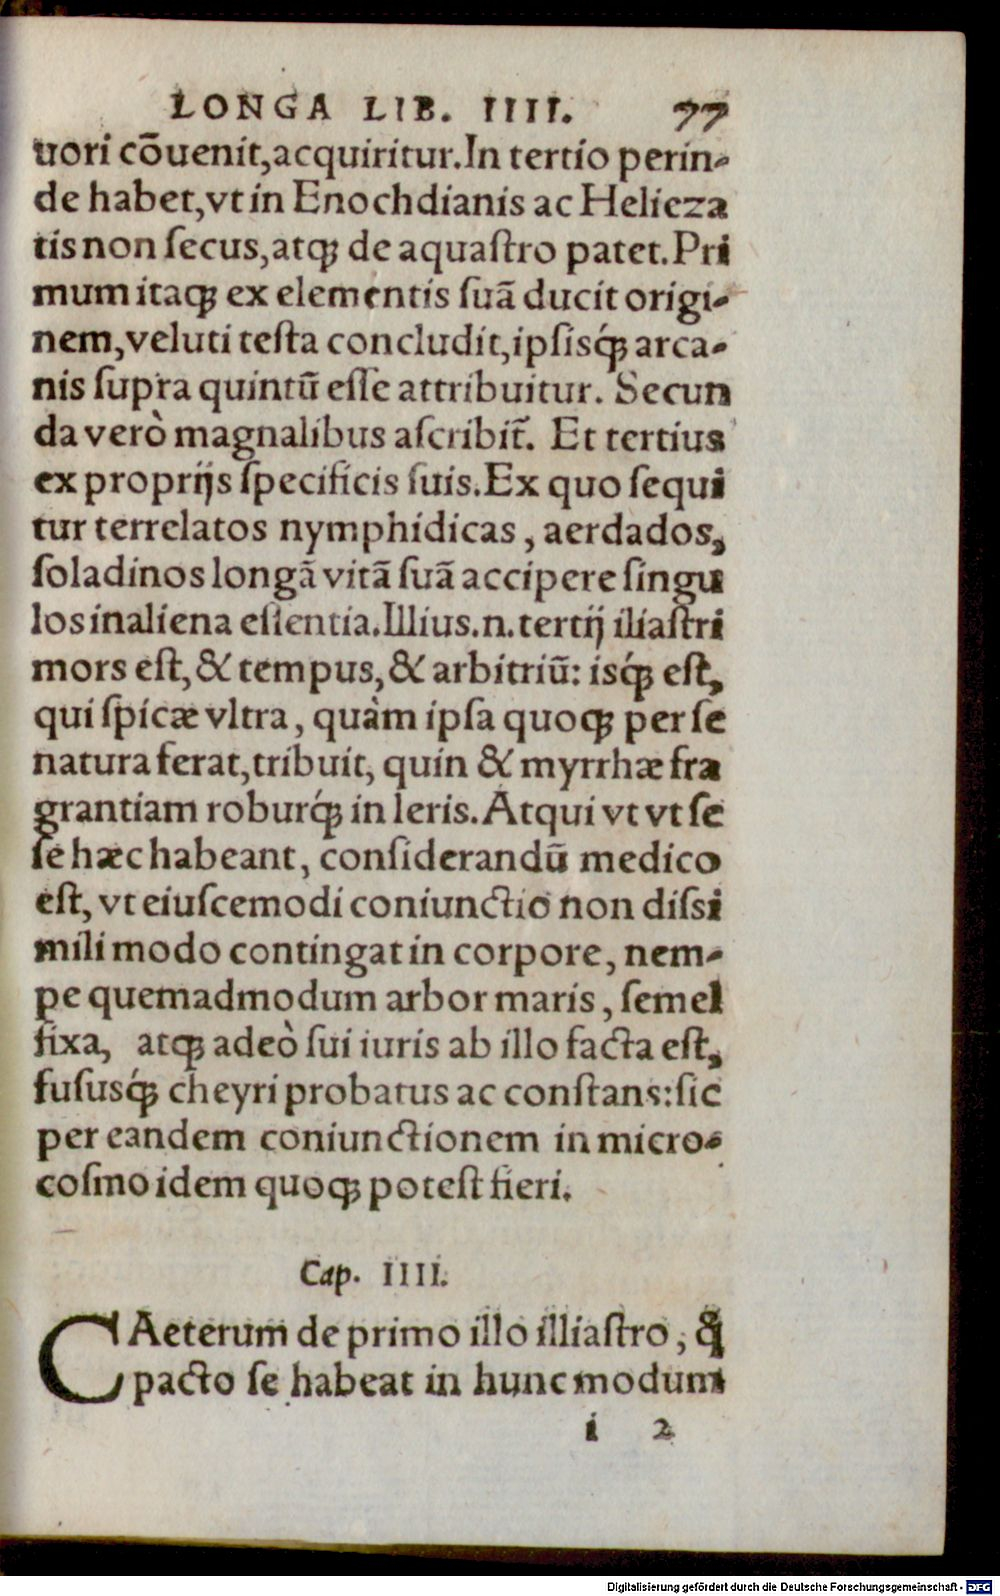 LONGA LIB. IIII. 77
uori cōuenit, acquiritur. In tertio perin-
de habet, vt in Enochdianis ac Helieza
tis non ſecus, atq́ꝫ de aquaſtro patet. Pri
mum itaqꝫ ex elementis ſuā ducit origi-
nem, veluti teſta concludit, ipſisq́ꝫ arca-
nis ſupra quintū eſſe attribuitur. Secun
da verò magnalibus aſcribit̃. Et tertius
ex proprijs ſpecificis ſuis. Ex quo ſequi
tur terrelatos nymphidicas, aerdados,
ſoladinos longā vitā ſuā accipere ſingu
los in aliena eſſentia. Illius .n. tertij iliaſtri
mors eſt, & tempus, & arbitriū: isq́ꝫ eſt,
qui ſpicæ vltra, quàm ipſa quoqꝫ per ſe
natura ferat, tribuit, quin & myrrhæ fra
grantiam roburq́ꝫ in leris. Atqui vt vt ſe
ſe hæc habeant, conſiderandū medico
eſt, vt eiuſcemodi coniunctio non diſsi
mili modo contingat in corpore, nem-
pe quemadmodum arbor maris, ſemel
fixa, atqꝫ adeò ſui iuris ab illo facta eſt,
fuſusq́ꝫ cheyri probatus ac conſtans: ſic
per eandem coniunctionem in micro-
coſmo idem quoqꝫ poteſt fieri.
Cap. IIII.
CAeterum de primo illo illiaſtro, &
pacto ſe habeat in hunc modum
i 2
Digitalisierung gefördert durch die Deutsche Forschungsgemeinschaft - DFG